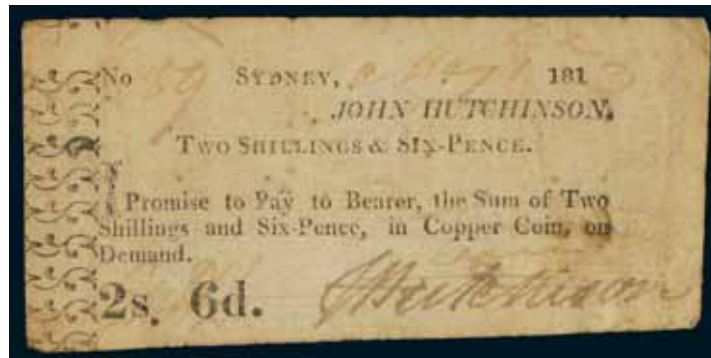 No 59 SYDNEY, 181
JOHN HUTCHINSON.
TWO SHILLINGS & SIX-PENCE.
I Promise to Pay to Bearer, the Sum of Two
Shillings and Six-Pence, in Copper Coin, on
Demand.
2s. 6d. J Hutchinson